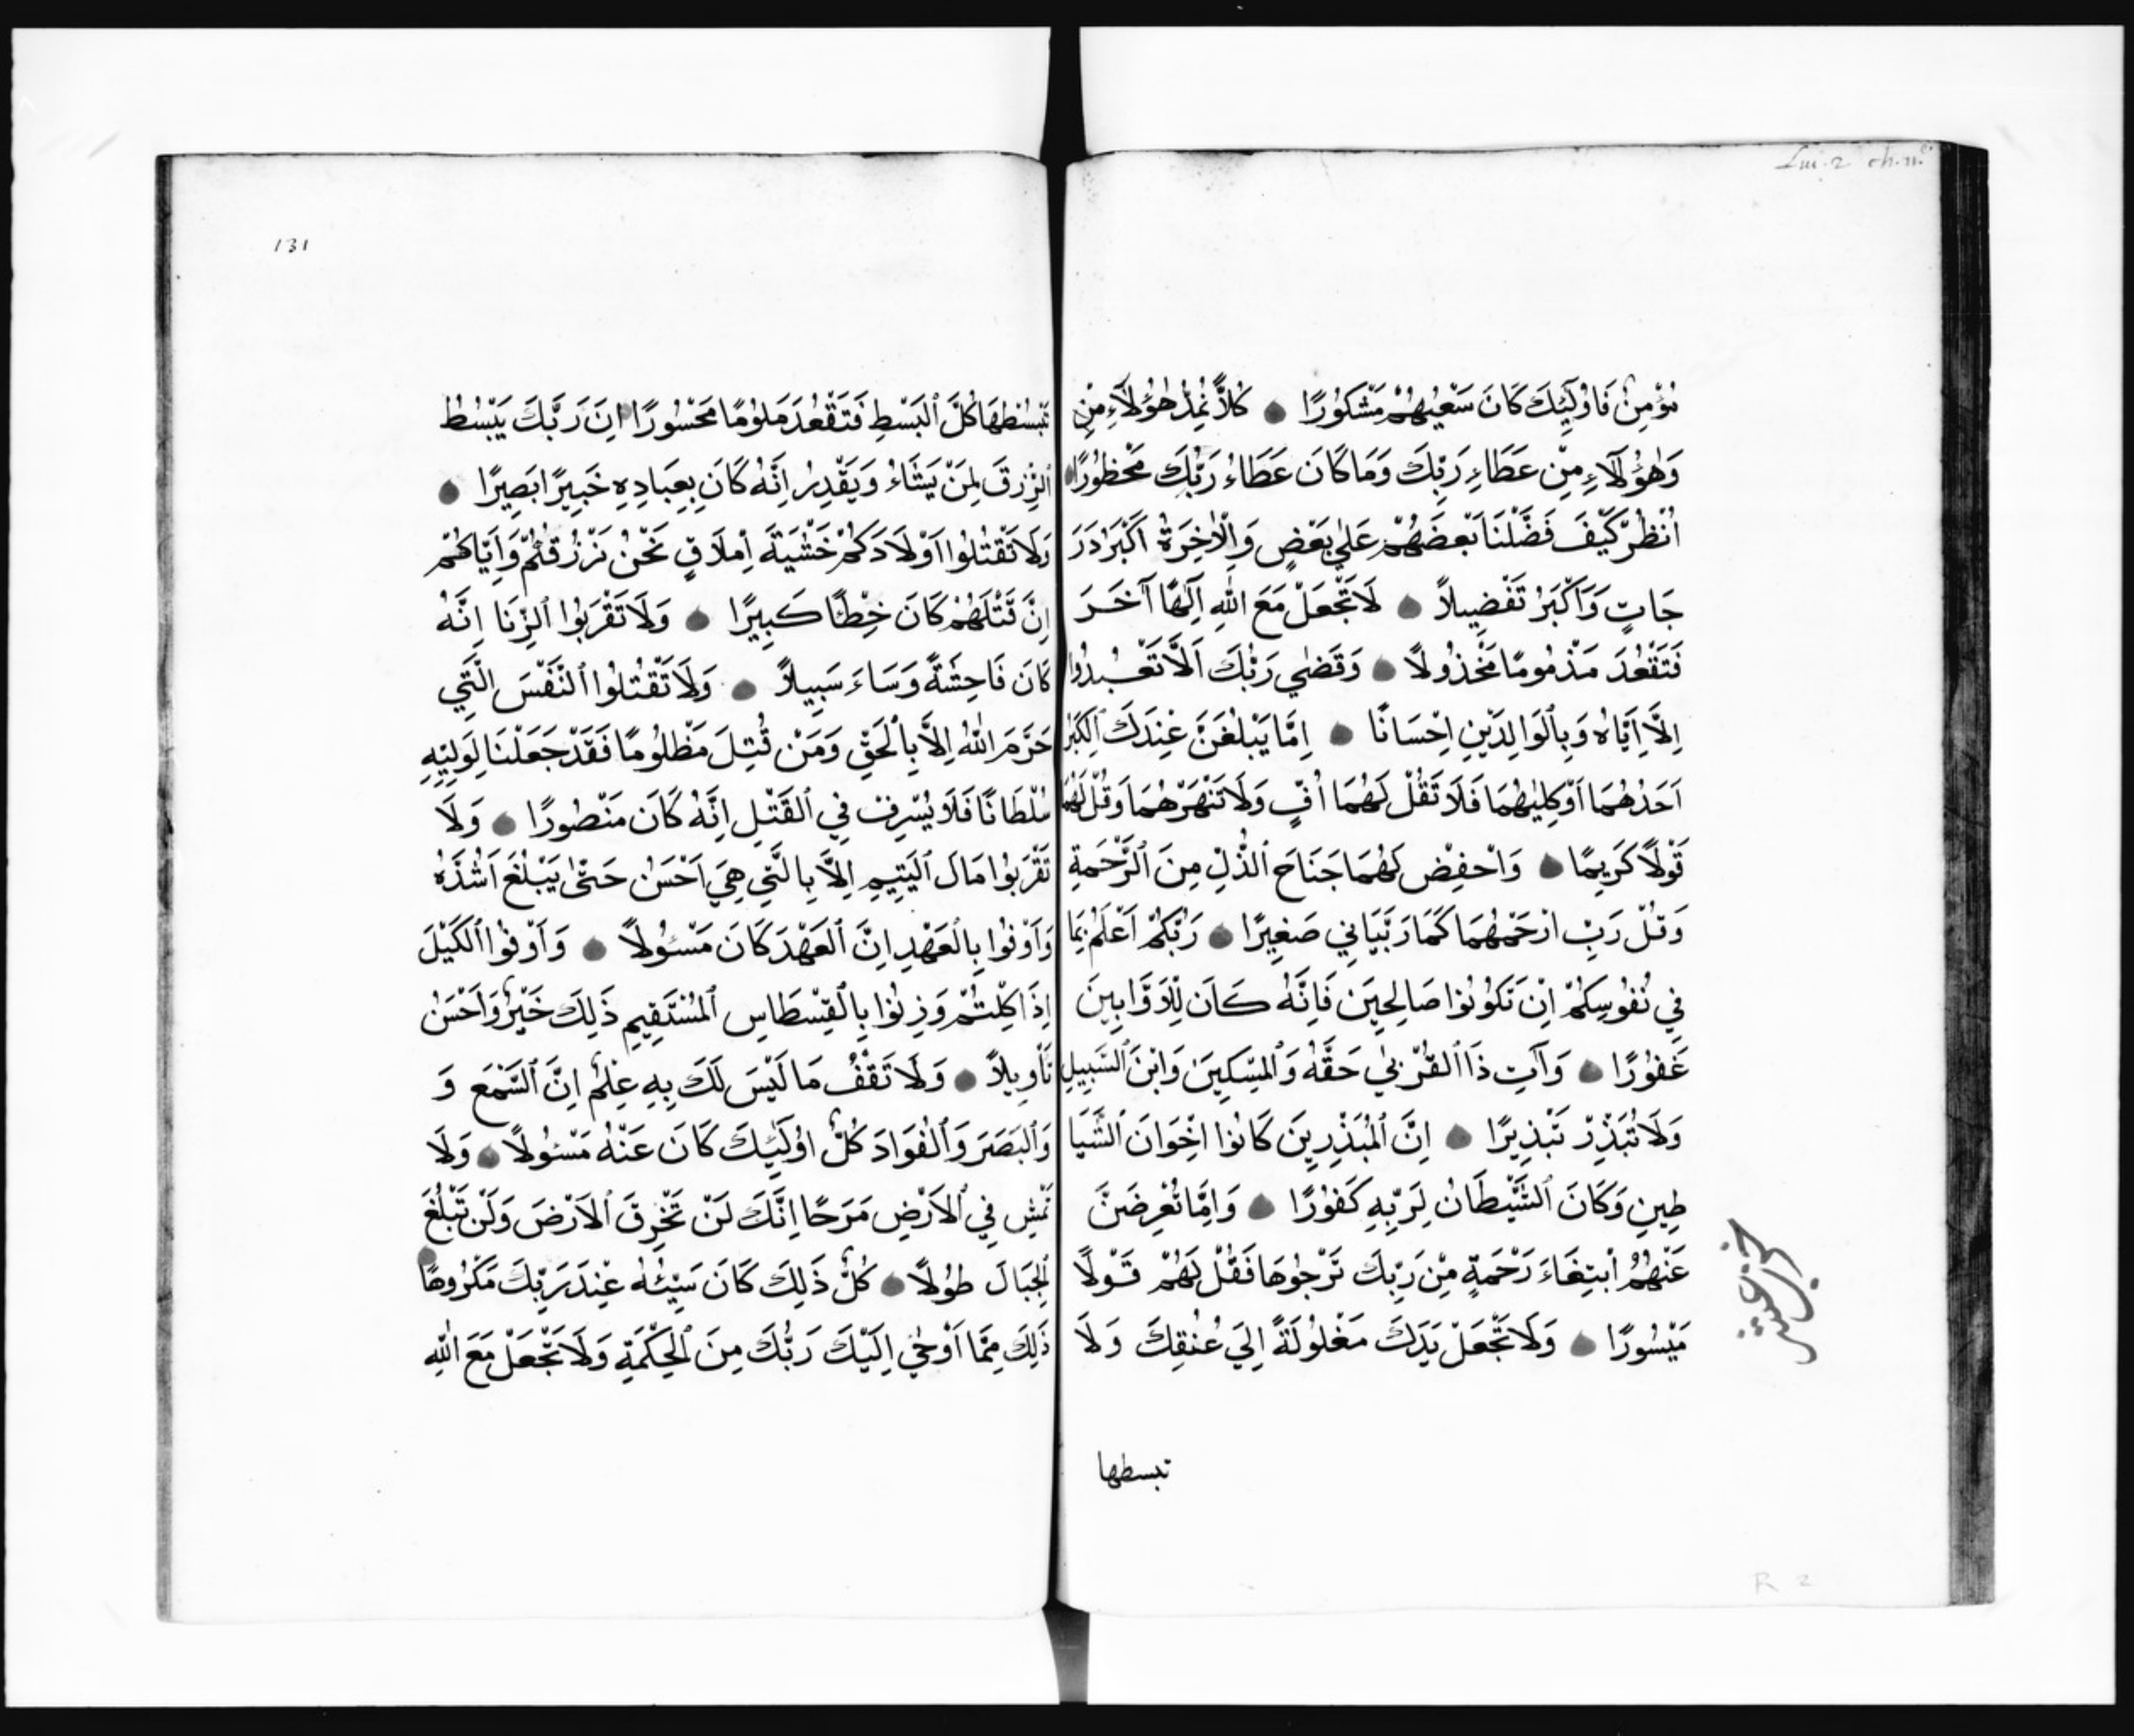 Lui. 2 ch. 11.e
مُؤْمِنٌ فَاُولٰٓئِكَ كَانَ سَعْيُهُمْ مَشْكُورًا كُلاًّ نُمِدُّ هٰؤُلَآءِ مِنْ
وَهٰؤُلَآءِ مِنْ عَطَاءِ رَبِّكَ وَمَا كَانَ عَطَاءُ رَبِّكَ مَحْظُورًا
اُنْظُرْ كَيْفَ فَضَّلْنَا بَعْضَهُمْ عَلٰي بَعْضٍ وَالْاٰخِرَةُ اَكْبَرُ دَرَ
جَاتٍ وَاَكْبَرُ تَفْضِيلاً لَا تَجْعَلْ مَعَ اللّٰهِ اِلٰهًا آخَرَ
فَتَقْعُدَ مَذْمُومًا مَخْذُولًا وَقَضٰي رَبُّكَ اَلَّا تَعْبُدُوا
اِلَّا اِيَّاهُ وَبِالْوَالِدَيْنِ اِحْسَانًا اِمَّا يَبْلُغَنَّ عِنْدَكَ الْكِبَرَ
اَحَدُهُمَا اَوْ كِلٰيهُمَا فَلَا تَقُلْ لَهُمَا اُفٍّ وَلَا تَنْهَرْهُمَا وَقُلْ لَهُمَا
قَوْلًا كَرِيمًا وَاحْفِضْ لَهُمَا جَنَاحَ الذُّلِّ مِنَ الرَّحْمَةِ
وَقُلْ رَبِّ ارْحَمْهُمَا كَمَا رَبَّيَانِي صَغِيرًا رَبُّكُمْ اَعْلَمُ بِمَا
فِي نُفُوسِكُمْ اِنْ تَكُونُوا صَالِحِينَ فَاِنَّهُ كَانَ لِلْاَوَّابِينَ
غَفُورًا وَآتِ ذَا الْقُرْبٰي حَقَّهُ وَالْمِسْكِينَ وَابْنَ السَّبِيلِ
وَلَا تُبَذِّرْ تَبْذِيرًا اِنَّ الْمُبَذِّرِينَ كَانُوا اِخْوَانَ الشَّيَا
طِينِ وَكَانَ الشَّيْطَانُ لِرَبِّهِ كَفُورًا وَاِمَّا تُعْرِضَنَّ
عَنْهُمُ ابْتِغَاءَ رَحْمَةٍ مِنْ رَبِّكَ تَرْجُوهَا فَقُلْ لَهُمْ قَوْلًا
مَيْسُورًا وَلَا تَجْعَلْ يَدَكَ مَغْلُولَةً اِلَي عُنُقِكَ وَلَا
تبسطها
R 2
131
تَبْسُطْهَا كُلَّ الْبَسْطِ فَتَقْعُدَ مَلُومًا مَحْسُورًا اِنَّ رَبَّكَ يَبْسُطُ
الرِّزْقَ لِمَنْ يَشَاءُ وَيَقْدِرُ اِنَّهُ كَانَ بِعِبَادِهِ خَبِيرًا بَصِيرًا
وَلَا تَقْتُلُوا اَوْلَادَكُمْ خَشْيَةَ اِمْلَاقٍ نَحْنُ نَرْزُقُهُمْ وَاِيَّاكُمْ
اِنَّ قَتْلَهُمْ كَانَ خِطْئًا كَبِيرًا وَلَا تَقْرَبُوا الزِّنَا اِنَّهُ
كَانَ فَاحِشَةً وَسَاءَ سَبِيلاً وَلَا تَقْتُلُوا النَّفْسَ الَّتِي
حَرَّمَ اللّٰهُ اِلاَّ بِالْحَقِّ وَمَنْ قُتِلَ مَظْلُومًا فَقَدْ جَعَلْنَا لِوَلِيِّهِ
سُلْطَانًا فَلَا يُسْرِفْ فِي الْقَتْلِ اِنَّهُ كَانَ مَنْصُورًا وَلَا
تَقْرَبُوا مَالَ الْيَتِيمِ اِلاَّ بِالَّتِي هِيَ اَحْسَنُ حَتّٰى يَبْلُغَ اَشُدَّهُ
وَاَوْفُوا بِالْعَهْدِ اِنَّ الْعَهْدَ كَانَ مَسْئُولاً وَاَوْفُوا الْكَيْلَ
اِذَا كِلْتُمْ وَزِنُوا بِالْقِسْطَاسِ الْمُسْتَقِيمِ ذَلِكَ خَيْرٌ وَاَحْسَنُ
تَأْوِيلاً وَلَا تَقْفُ مَا لَيْسَ لَكَ بِهِ عِلْمٌ اِنَّ السَّمْعَ وَ
وَالْبَصَرَ وَالْفُوَادَ كُلُّ اُولٰٓئِكَ كَانَ عَنْهُ مَسْئُولاً وَلَا
تَمْشِ فِي الْاَرْضِ مَرَحًا اِنَّكَ لَنْ تَخْرِقَ الْاَرْضَ وَلَنْ تَبْلُغَ
الْجِبَالَ طُولًا كُلُّ ذَلِكَ كَانَ سَيِّئُهُ عِنْدَ رَبِّكَ مَكْرُوهًا
ذَلِكَ مِمَّا اَوْحٰي اِلَيْكَ رَبُّكَ مِنَ الْحِكْمَةِ وَلَا تَجْعَلْ مَعَ اللّٰهِ